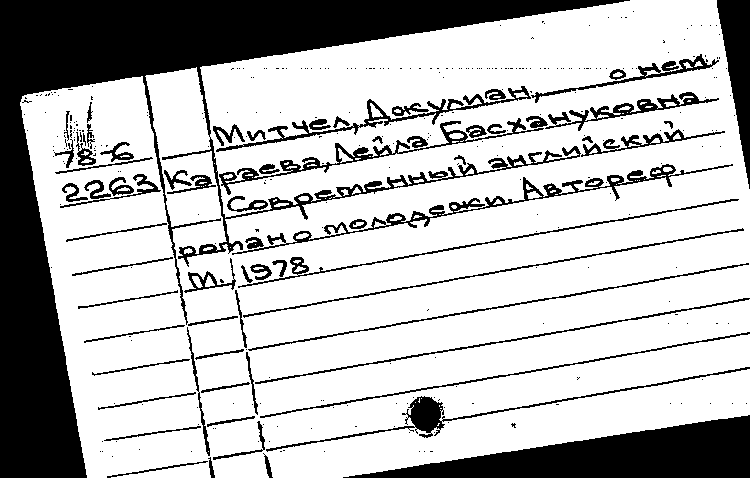 Митчел, Джулиан, о нем
78-6
Караева, Лейла Басхануковна
2263
Современный английский
роман о молодежи. Автореф.
М., 1978.